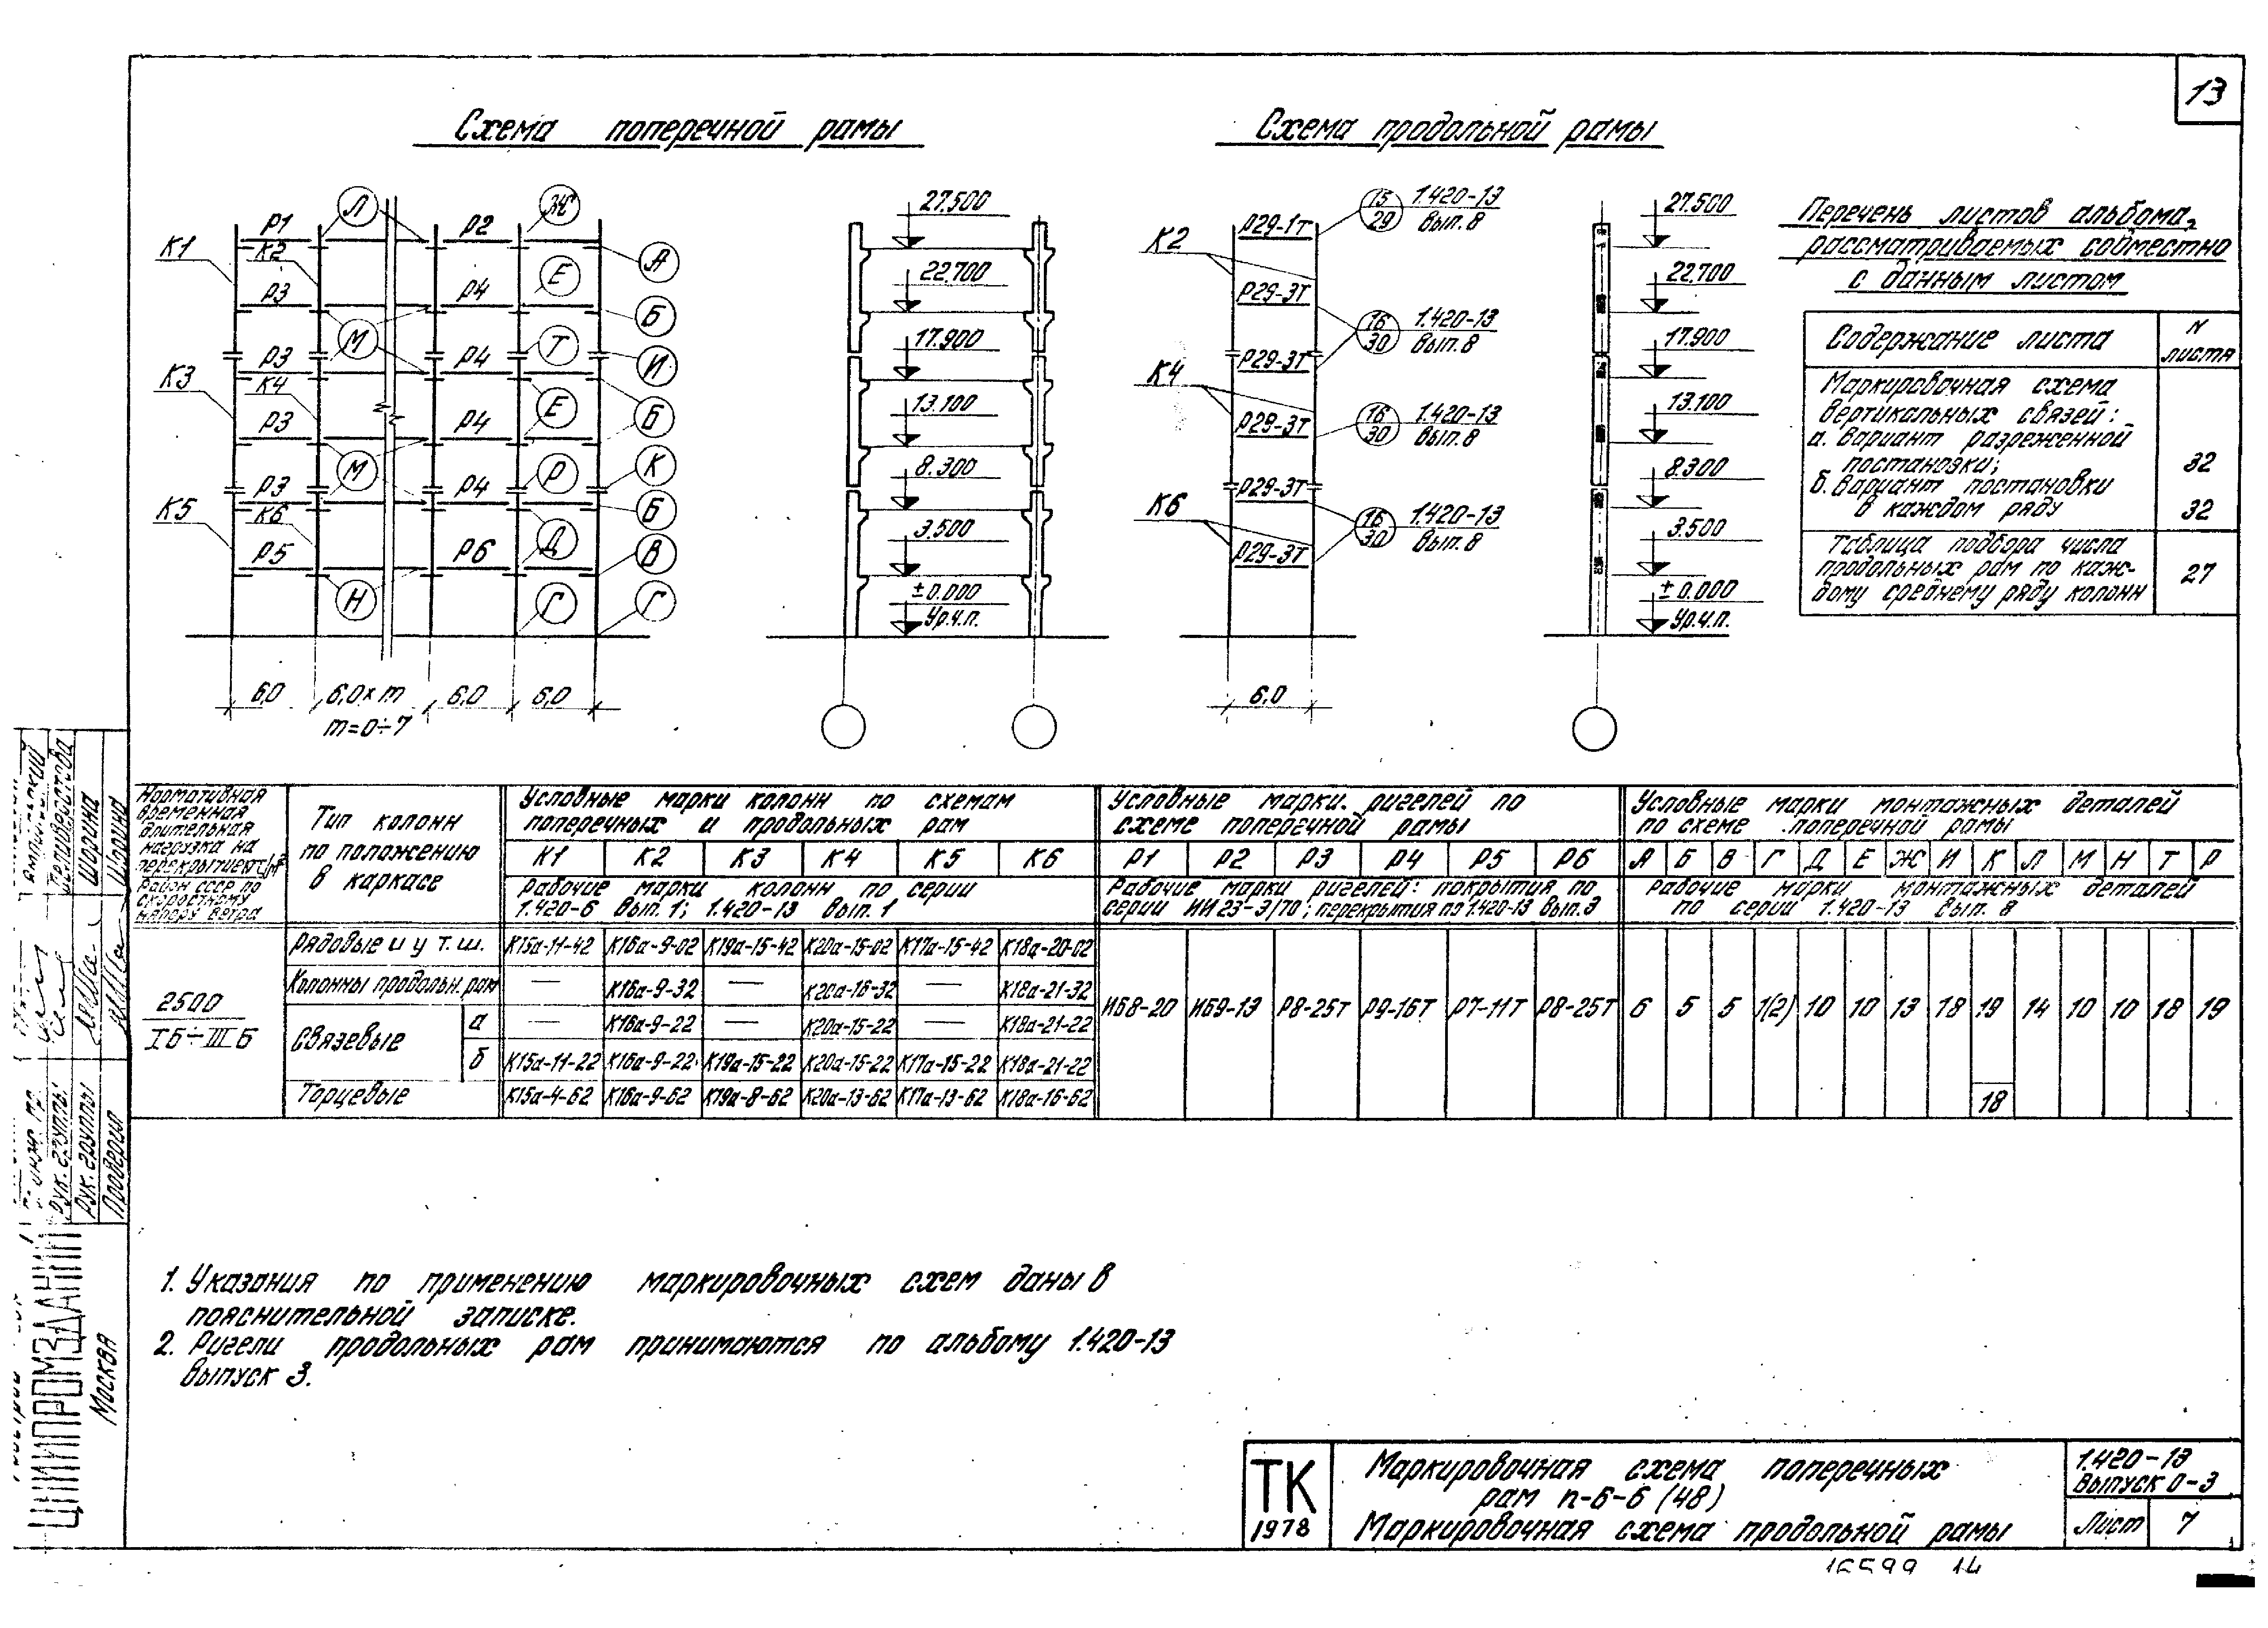 13
Схема поперечной рамы
Схема продольной рамы
Перечень листов альбома,
рассматриваемых совместно
с данным листом
Содержание листа
N листа
Маркировочная схема
вертикальных связей:
а. Вариант разреженной
постановки;
32
б. Вариант постановки
в каждом ряду
32
Таблица подбора числа
продольных рам по каж-
дому среднему ряду колонн
27
К1
К2
К3
К4
К5
К6
Р1
Р2
Р3
Р4
Р3
Р4
Р3
Р4
Р3
Р4
Р5
Р6
Л
Ж
А
Е
Б
М
Т
И
Е
Б
М
Р
К
Б
Д
В
Н
Г
Г
6,0
6,0×m
6,0
6,0
m=0÷7
27.500
22.700
17.900
13.100
8.300
3.500
±0.000
Ур.ч.п.
К2
К4
К6
Р29-1Т
Р29-3Т
Р29-3Т
Р29-3Т
Р29-3Т
Р29-3Т
15
29
1.420-13
Вып. 8
16
30
1.420-13
Вып. 8
16
30
1.420-13
Вып. 8
16
30
1.420-13
Вып. 8
6,0
27.500
22.700
17.900
13.100
8.300
3.500
±0.000
Ур.ч.п.
Нормативная
временная
длительная
нагрузка на
перекрытие
Район СССР по
скоростному
напору ветра
Тип колонн
по положению
в каркасе
Условные марки колонн по схемам
поперечных и продольных рам
К1 К2 К3 К4 К5 К6
Рабочие марки колонн по серии
1.420-6 Вып. 1; 1.420-13 Вып. 1
Условные марки. ригелей по
схеме поперечной рамы
Р1 Р2 Р3 Р4 Р5 Р6
Рабочие марки ригелей: покрытия по
серии ИИ 23-3/70; перекрытия по 1.420-13 Вып. 3
Условные марки монтажных деталей
по схеме поперечной рамы
А Б В Г Д Е Ж И К Л М Н Т Р
Рабочие марки монтажных деталей
по серии 1.420-13 Вып. 8
2500
IБ÷IIIБ
Рядовые и у т.ш. К15а-11-42 К16а-9-02 К19а-15-42 К20а-15-02 К17а-15-42 К18а-20-02
Колонны продольн. рам — К16а-9-32 — К20а-16-32 — К18а-21-32
Связевые
а — К16а-9-22 — К20а-15-22 — К18а-21-22
б К15а-11-22 К16а-9-22 К19а-15-22 К20а-15-22 К17а-15-22 К18а-21-22
Торцевые К15а-4-62 К16а-9-62 К19а-8-62 К20а-13-62 К17а-13-62 К18а-16-62
ИБ8-20 ИБ9-13 Р8-25Т Р9-16Т Р7-11Т Р8-25Т
6 5 5 1(2) 10 10 13 18 19 14 10 10 18 19
18
1. Указания по применению маркировочных схем даны в
пояснительной записке.
2. Ригели продольных рам принимаются по альбому 1.420-13
Выпуск 3.
ТК
1978
Маркировочная схема поперечных
рам п-6-6 (48)
Маркировочная схема продольной рамы
1.420-13
Выпуск 0-3
Лист 7
ЦНИИПРОМЗДАНИЙ
Москва
Рук. группы
Рук. группы
Проверил
Шорина
Шорина